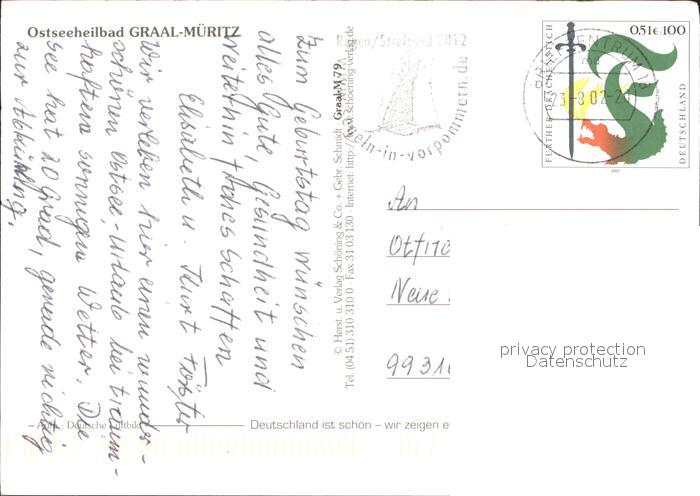 Ostseeheilbad GRAAL-MÜRITZ
Zum Geburtstag wünschen
alles Gute, Gesundheit und
weiterhin frohes Schaffen
Elisabeth u. Kurt Förster
Wir verleben hier einen wunder-
schönen Ostsee-Urlaub bei traum-
haftem sonnigen Wetter. Die
See hat 20 Grad, gerade richtig
zur Abkühlung.
Aufn.: Deutsche Luftbild
Deutschland ist schön – wir zeigen e
© Herst. u. Verlag Schöning & Co. + Gebr. Schmidt
Tel. (04 51) 310 310 0 · Fax 31 03 130 · Internet: http://www.schoening-verlag.de
Graal-M 79
/Stralsund 2012
segeln-in-vorpommern.de
BRIEFZENTRUM 18
-8.02-2
FURTHER DRACHENSTICH
0,51€ 100
DEUTSCHLAND
An
Ottfried
Neue
9931
privacy protection
Datenschutz